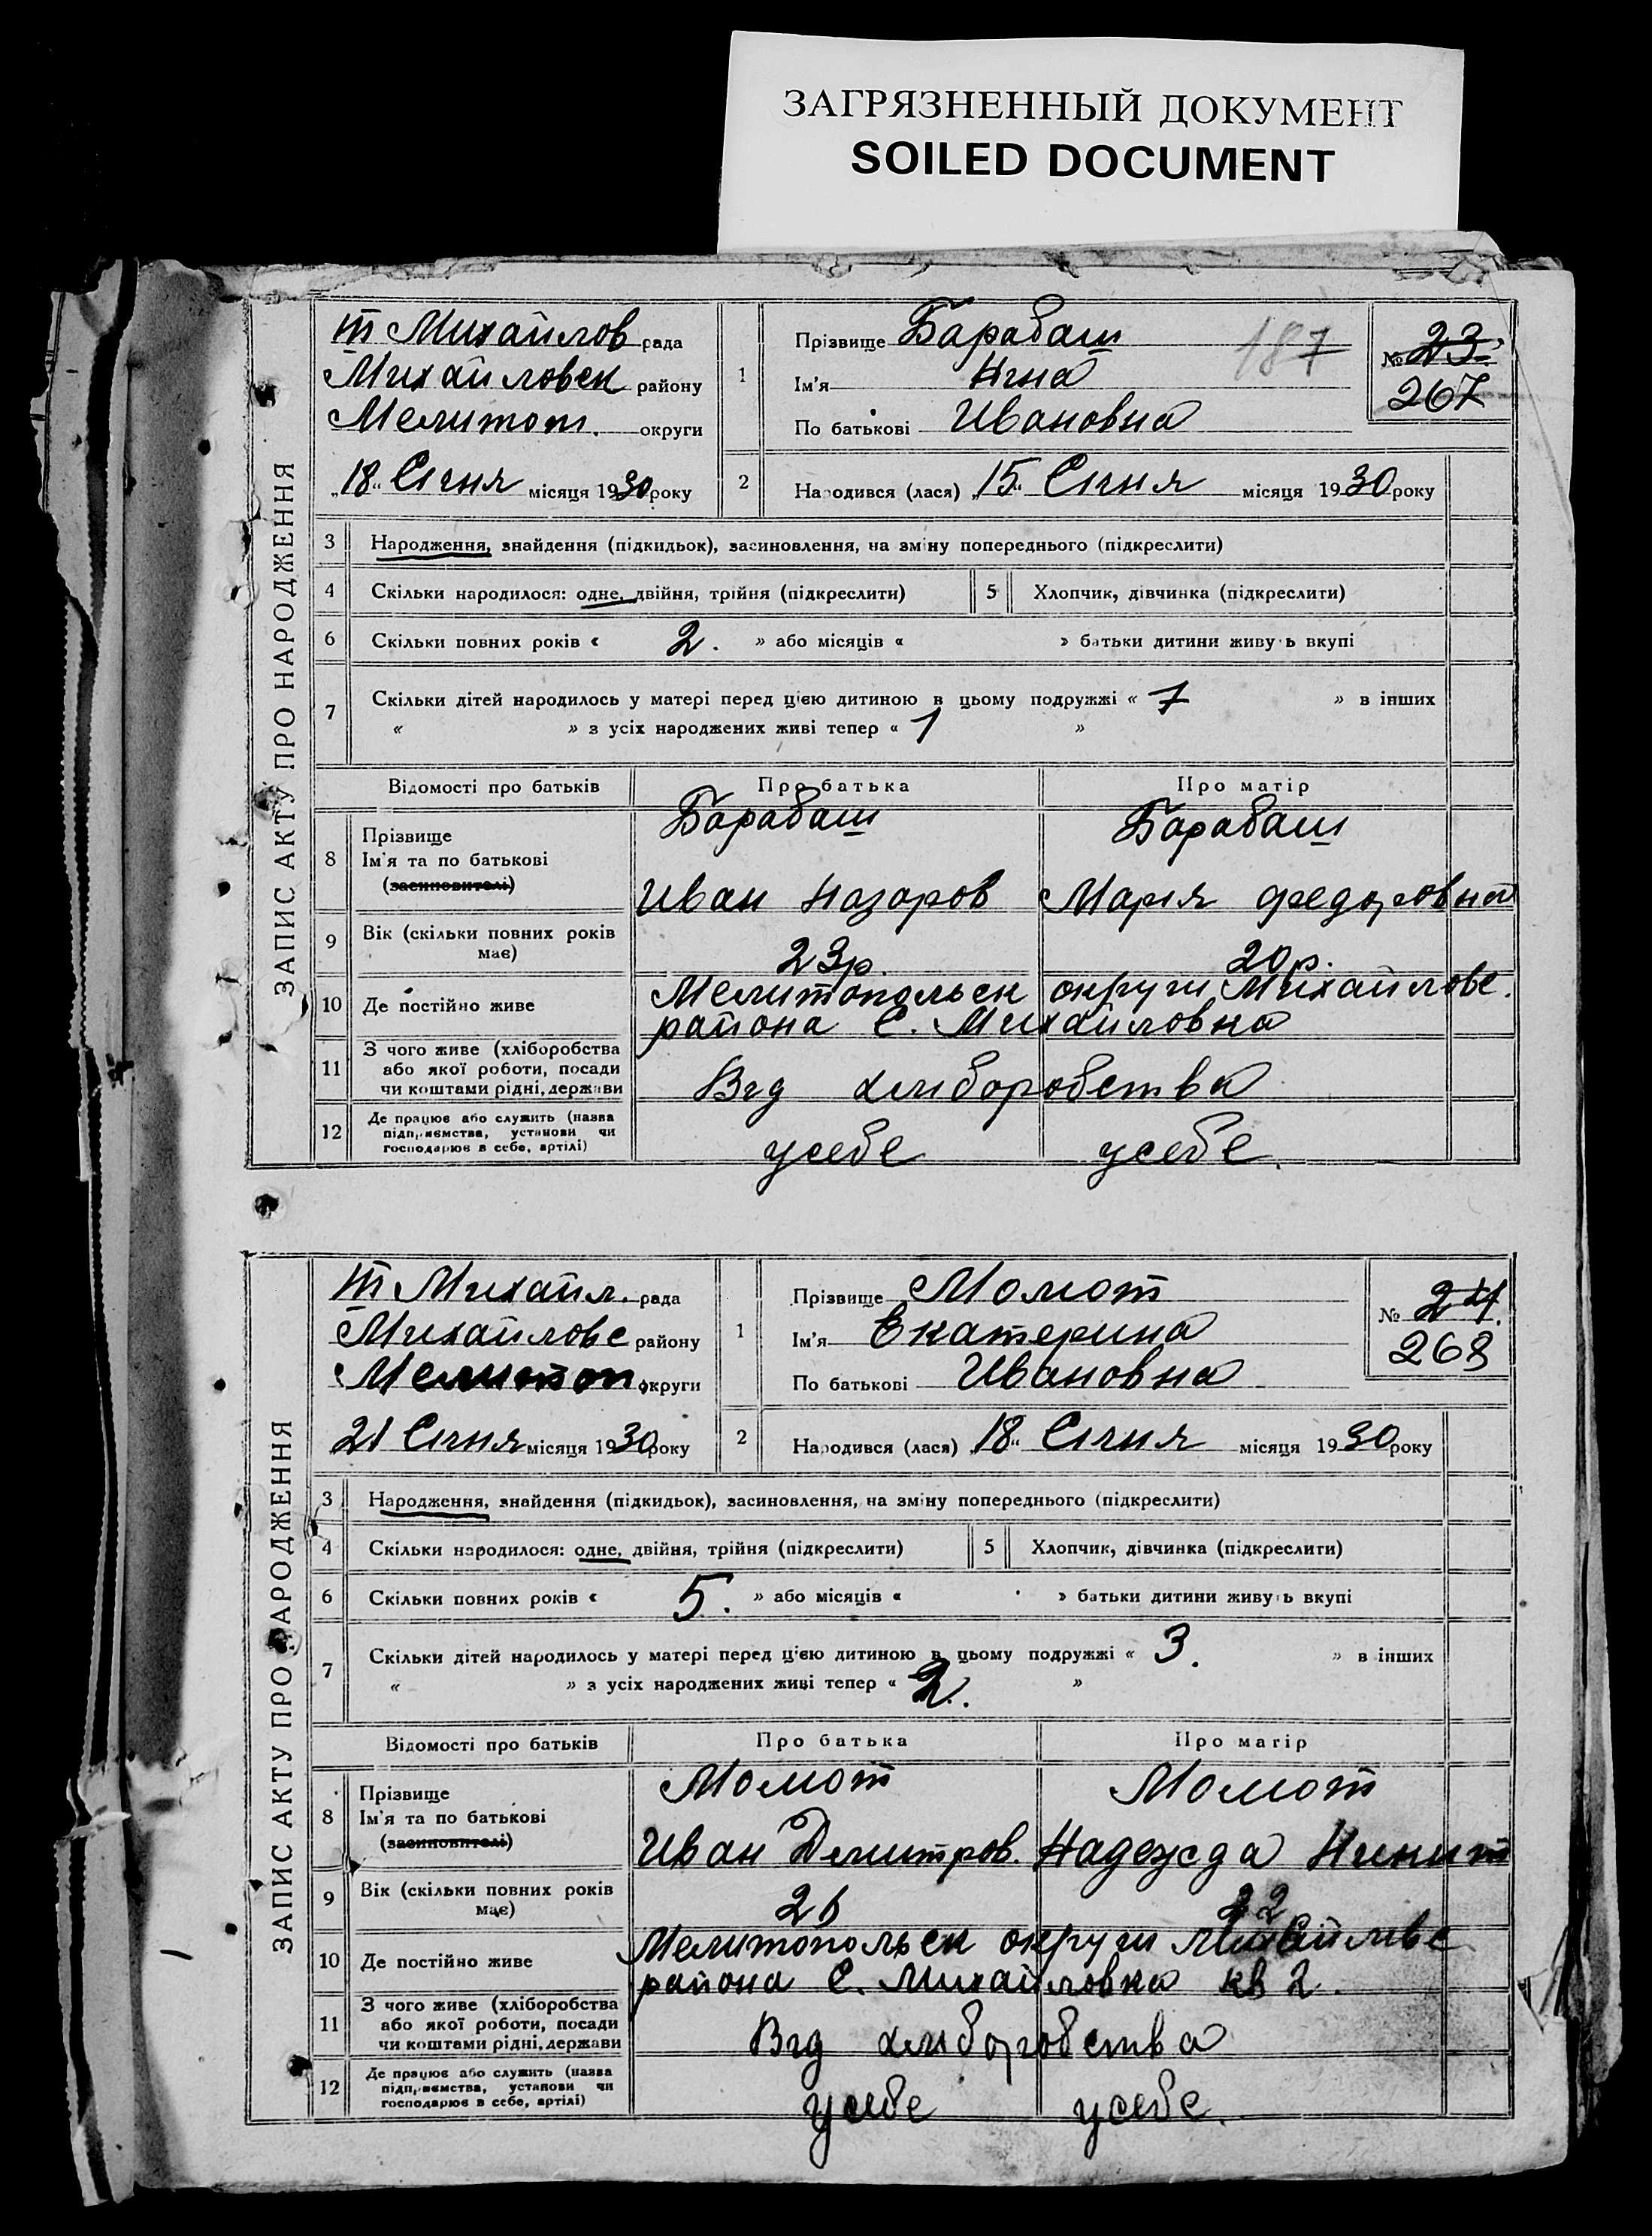 ЗАГРЯЗНЕННЫЙ ДОКУМЕНТ
SOILED DOCUMENT
ЗАПИС АКТУ ПРО НАРОДЖЕННЯ
т Михайлов рада
Михайловск району
Мелитоп. округи
„18“ Січня місяця 1930 року
1
Прізвище Барабаш
187
Ім'я Нина
По батькові Ивановна
№ 23
267
2
Народився (лася) „15“ Січня місяця 1930 року
3 Народження, знайдення (підкидьок), засиновлення, на зміну попереднього (підкреслити)
4 Скільки народилося: одне, двійня, трійня (підкреслити) 5 Хлопчик, дівчинка (підкреслити)
6 Скільки повних років « 2. » або місяців « » батьки дитини живуть вкупі
7 Скільки дітей народилось у матері перед цією дитиною в цьому подружжі « » в інших
« » з усіх народжених живі тепер « 1 »
Відомості про батьків Про батька Про матір
8 Прізвище Барабаш Барабаш
Ім'я та по батькові
(засиновителі) Иван Назаров Мария Федоровна
9 Вік (скільки повних років має) 23р. 20р.
10 Де постійно живе Мелитопольск округи Михайловс.
района С. Михайловка
11 З чого живе (хліборобства
або якої роботи, посади
чи коштами рідні, держави Від хліборобства
12 Де працює або служить (назва
підприємства, установи чи
господарює в себе, артілі) усебе усебе.
ЗАПИС АКТУ ПРО НАРОДЖЕННЯ
т Михайл. рада
Михайловс району
Мелитоп округи
21 Січня місяця 1930 року
1
Прізвище Момот
Ім'я Екатерина
По батькові Ивановна
№ 24.
268
2
Народився (лася) 18“ Січня місяця 1930 року
3 Народження, знайдення (підкидьок), засиновлення, на зміну попереднього (підкреслити)
4 Скільки народилося: одне, двійня, трійня (підкреслити) 5 Хлопчик, дівчинка (підкреслити)
6 Скільки повних років « 5. » або місяців « » батьки дитини живуть вкупі
7 Скільки дітей народилось у матері перед цією дитиною в цьому подружжі « 3. » в інших
« » з усіх народжених живі тепер « 2. »
Відомості про батьків Про батька Про матір
8 Прізвище Момот Момот
Ім'я та по батькові
(засиновителі) Иван Дмитров. Надежда
9 Вік (скільки повних років має) 22
10 Де постійно живе Мелитопольск округи
района С. Михайловка кв 2.
11 З чого живе (хліборобства
або якої роботи, посади
чи коштами рідні, держави Від хліборобства
12 Де працює або служить (назва
підприємства, установи чи
господарює в себе, артілі) усебе усебе.